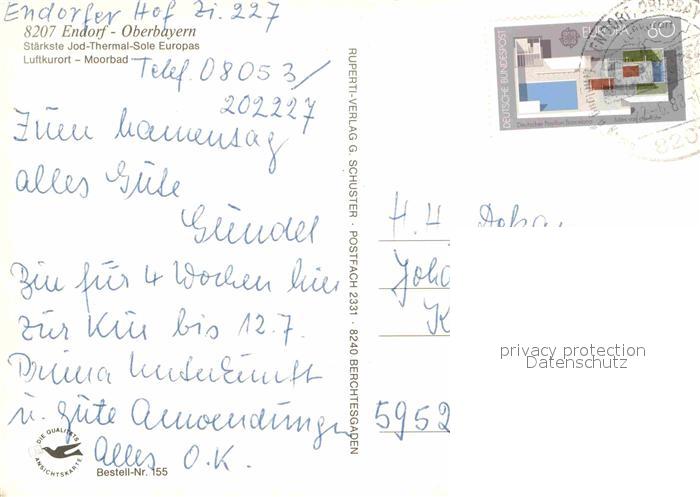 Endorfer Hof Zi. 227
8207 Endorf - Oberbayern
Stärkste Jod-Thermal-Sole Europas
Luftkurort – Moorbad
Telef. 08053/
202227
Zum Namenstag
alles Gute
Gündel
Bin für 4 Wochen hier
zur Kur bis 12.7.
Prima Unterkunft
u. gute Anwendungen
Alles O.K.
DIE QUALITÄTS
ANSICHTSKARTE
Bestell-Nr. 155
RUPERTI-VERLAG G. SCHUSTER · POSTFACH 2331 · 8240 BERCHTESGADEN
DEUTSCHE BUNDESPOST
EUROPA 80
Deutscher Pavillon Barcelona
H. H.
Joha
K
5952
privacy protection
Datenschutz